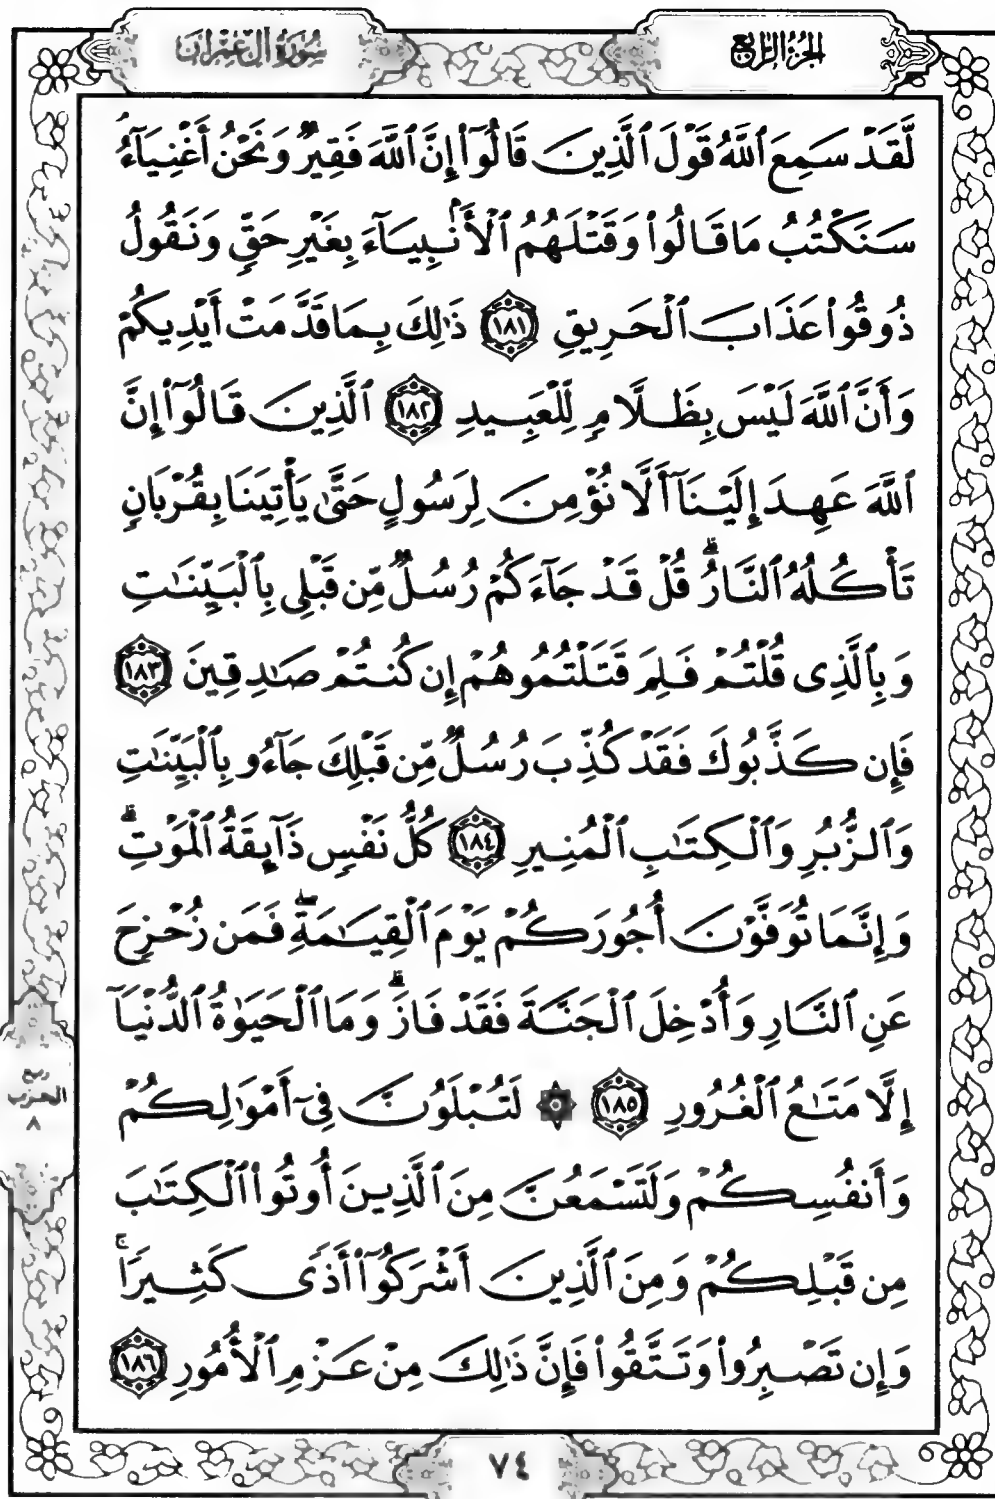 الجزء الرابع
سورة آل عمران
لَّقَدْ سَمِعَ ٱللَّهُ قَوْلَ ٱلَّذِينَ قَالُوٓا۟ إِنَّ ٱللَّهَ فَقِيرٌ وَنَحْنُ أَغْنِيَآءُ ۘ
سَنَكْتُبُ مَا قَالُوا۟ وَقَتْلَهُمُ ٱلْأَنۢبِيَآءَ بِغَيْرِ حَقٍّ وَنَقُولُ
ذُوقُوا۟ عَذَابَ ٱلْحَرِيقِ ١٨١ ذَٰلِكَ بِمَا قَدَّمَتْ أَيْدِيكُمْ
وَأَنَّ ٱللَّهَ لَيْسَ بِظَلَّامٍ لِّلْعَبِيدِ ١٨٢ ٱلَّذِينَ قَالُوٓا۟ إِنَّ
ٱللَّهَ عَهِدَ إِلَيْنَآ أَلَّا نُؤْمِنَ لِرَسُولٍ حَتَّىٰ يَأْتِيَنَا بِقُرْبَانٍ
تَأْكُلُهُ ٱلنَّارُ ۗ قُلْ قَدْ جَآءَكُمْ رُسُلٌ مِّن قَبْلِى بِٱلْبَيِّنَـٰتِ
وَبِٱلَّذِى قُلْتُمْ فَلِمَ قَتَلْتُمُوهُمْ إِن كُنتُمْ صَـٰدِقِينَ ١٨٣
فَإِن كَذَّبُوكَ فَقَدْ كُذِّبَ رُسُلٌ مِّن قَبْلِكَ جَآءُو بِٱلْبَيِّنَـٰتِ
وَٱلزُّبُرِ وَٱلْكِتَـٰبِ ٱلْمُنِيرِ ١٨٤ كُلُّ نَفْسٍ ذَآئِقَةُ ٱلْمَوْتِ ۗ
وَإِنَّمَا تُوَفَّوْنَ أُجُورَكُمْ يَوْمَ ٱلْقِيَـٰمَةِ ۖ فَمَن زُحْزِحَ
عَنِ ٱلنَّارِ وَأُدْخِلَ ٱلْجَنَّةَ فَقَدْ فَازَ ۗ وَمَا ٱلْحَيَوٰةُ ٱلدُّنْيَآ
إِلَّا مَتَـٰعُ ٱلْغُرُورِ ١٨٥ ۞ لَتُبْلَوُنَّ فِىٓ أَمْوَٰلِكُمْ
وَأَنفُسِكُمْ وَلَتَسْمَعُنَّ مِنَ ٱلَّذِينَ أُوتُوا۟ ٱلْكِتَـٰبَ
مِن قَبْلِكُمْ وَمِنَ ٱلَّذِينَ أَشْرَكُوٓا۟ أَذًى كَثِيرًا ۚ
وَإِن تَصْبِرُوا۟ وَتَتَّقُوا۟ فَإِنَّ ذَٰلِكَ مِنْ عَزْمِ ٱلْأُمُورِ ١٨٦
ربع
الحزب
٨
٧٤